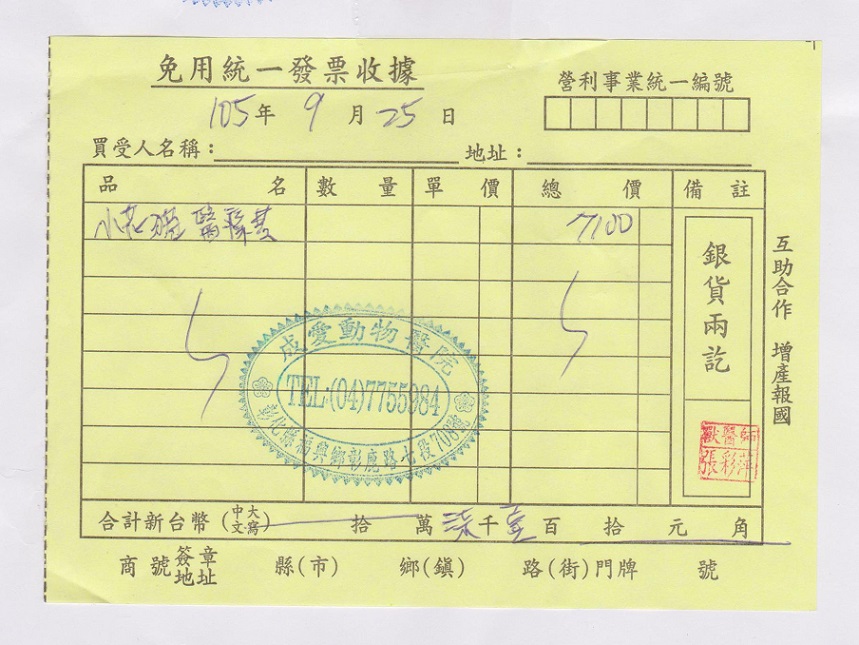 免用統一發票收據
營利事業統一編號
105年 9月 25日
買受人名稱： 地址：
品名 數量 單價 總價 備註
醫療費 7100
銀貨兩訖
互助合作 增產報國
成愛動物醫院
TEL:(04)7755984
彰化縣福興鄉彰鹿路七段708號
獸醫師
張彩萍
合計新台幣（中文大寫） 拾 萬 柒千壹百 拾 元 角
商號簽章地址 縣(市) 鄉(鎮) 路(街)門牌 號